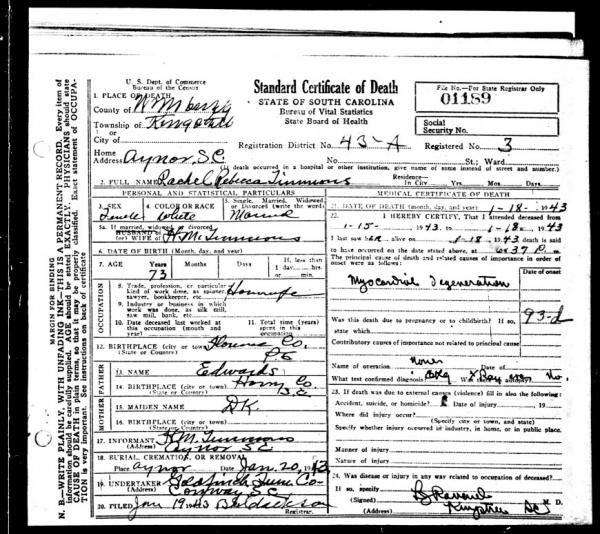 MARGIN FOR BINDING
N. B.—WRITE PLAINLY, WITH UNFADING INK—THIS IS A PERMANENT RECORD. Every item of
information should be carefully supplied. AGE should be stated EXACTLY. PHYSICIANS should state
CAUSE OF DEATH in plain terms, so that it may be properly classified. Exact statement of OCCUPA-
TION is very important. See instructions on back of certificate
U. S. Dept. of Commerce
Bureau of the Census
Standard Certificate of Death
STATE OF SOUTH CAROLINA
Bureau of Vital Statistics
State Board of Health
File No.—For State Registrar Only
01189
Social
Security No.
1. PLACE OF DEATH
County of
Township of
City of
Registration District No. 43-A
Registered No. 3
Home
Address Aynor, S.C.
No. St.; Ward
(If death occurred in a hospital or other institution, give name of same instead of street and number.)
2. FULL NAME Rachel Rebecca Timmons
Residence—
In City Yrs. Mos. Days
PERSONAL AND STATISTICAL PARTICULARS
3. SEX
Female
4. COLOR OR RACE
White
5. Single, Married, Widowed,
or Divorced (write the word)
Married
5a. If married, widowed, or divorced
HUSBAND of
(or) WIFE of Timmons
6. DATE OF BIRTH (Month, day, and year)
7. AGE Years Months Days If, less than
1 day, hrs.
or min.
73
OCCUPATION
8. Trade, profession, or particular
kind of work done, as spinner,
sawyer, bookkeeper, etc. Housewife
9. Industry or business in which
work was done, as silk mill,
saw mill, bank, etc.
10. Date deceased last worked at
this occupation (month and
year)
11. Total time (years)
spent in this
occupation
12. BIRTHPLACE (city or town) Florence Co.
(State or Country)
FATHER
13. NAME Edwards
14. BIRTHPLACE (city or town) Horry Co.
(State or Country)
MOTHER
15. MAIDEN NAME DK.
16. BIRTHPLACE (city or town)
(State or Country)
17. INFORMANT Timmons
(Address) Aynor SC
18. BURIAL, CREMATION, OR REMOVAL
Place Aynor Date Jan. 20, 1943
19. UNDERTAKER Goldfinch Fune Co-
(Address) Conway S.C.
20. FILED Jan 19 1943
Registrar.
MEDICAL CERTIFICATE OF DEATH
21. DATE OF DEATH (month, day, and year) 1-18-1943
22. I HEREBY CERTIFY, That I attended deceased from
1-15- 1943 to 1-18 1943
I last saw her alive on 1-18 1943 death is said
to have occurred on the date stated above, at 6:37 P m.
The principal cause of death and related causes of importance in order of
onset were as follows:
Date of onset
Myocardial degeneration
93-d
Was this death due to pregnancy or to childbirth? If so,
state which
Contributory causes of importance not related to principal cause
Name of operation None
What test confirmed diagnosis? Was there an autopsy? No.
23. If death was due to external causes (violence) fill in also the following:
Accident, suicide, or homicide? Date of injury 19
Where did injury occur?
(Specify city or town, and state)
Specify whether injury occurred in industry, in home, or in public place.
Manner of injury
Nature of injury
24. Was disease or injury in any way related to occupation of deceased?
If so, specify
(Signed) M. D.
(Address) SC